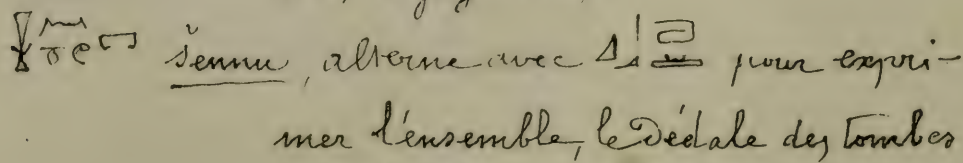 šennu, alterne avec pour expri-
mer l'ensemble, le Dédale des tombes